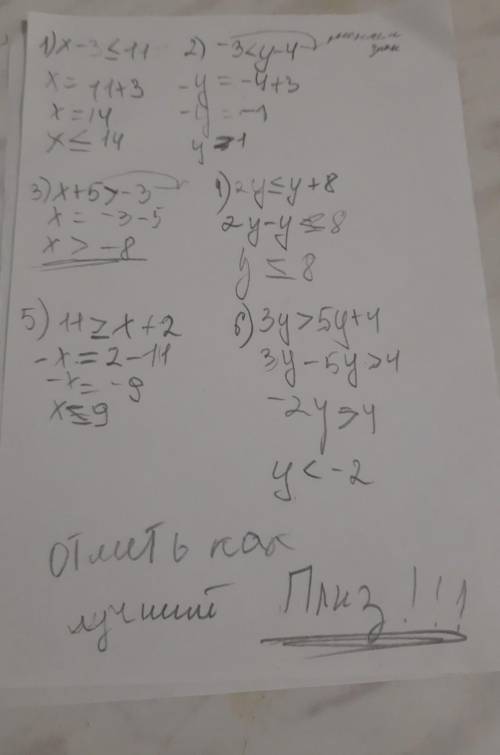 1) x - 3 ≤ 11
x = 11+3
x = 14
x ≤ 14
2) -3 < y - 4
-y = -4+3
-y = -1
y > 1
3) x + 5 > -3
x = -3 - 5
x > -8
2y ≤ y + 8
2y - y ≤ 8
y ≤ 8
5) 11 ≥ x + 2
-x = 2 - 11
-x = -9
x ≤ 9
6) 3y > 5y + 4
3y - 5y > 4
-2y > 4
y < -2
Отметь как
лучший Плиз!!!